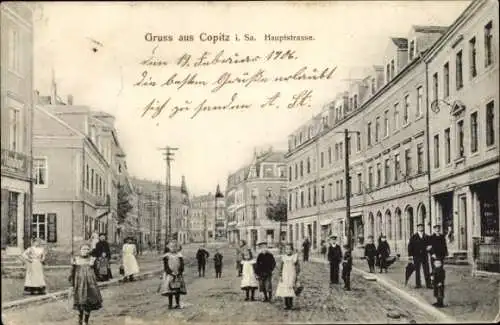 Gruss aus Copitz i. Sa. Hauptstrasse.
den 19. Februar 1906.
die besten Grüße erlaubt
sich zu senden A. St.